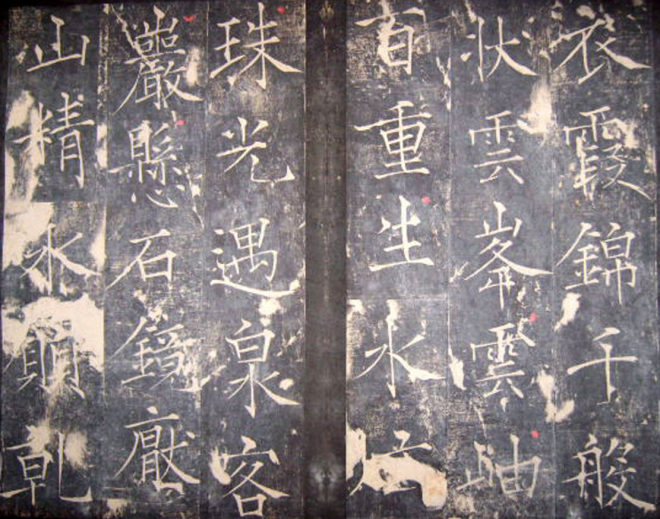 衣霞錦千般
狀雲峯雲岫
百重生水
珠光遇泉客
巖懸石鏡厭
山精永願乾